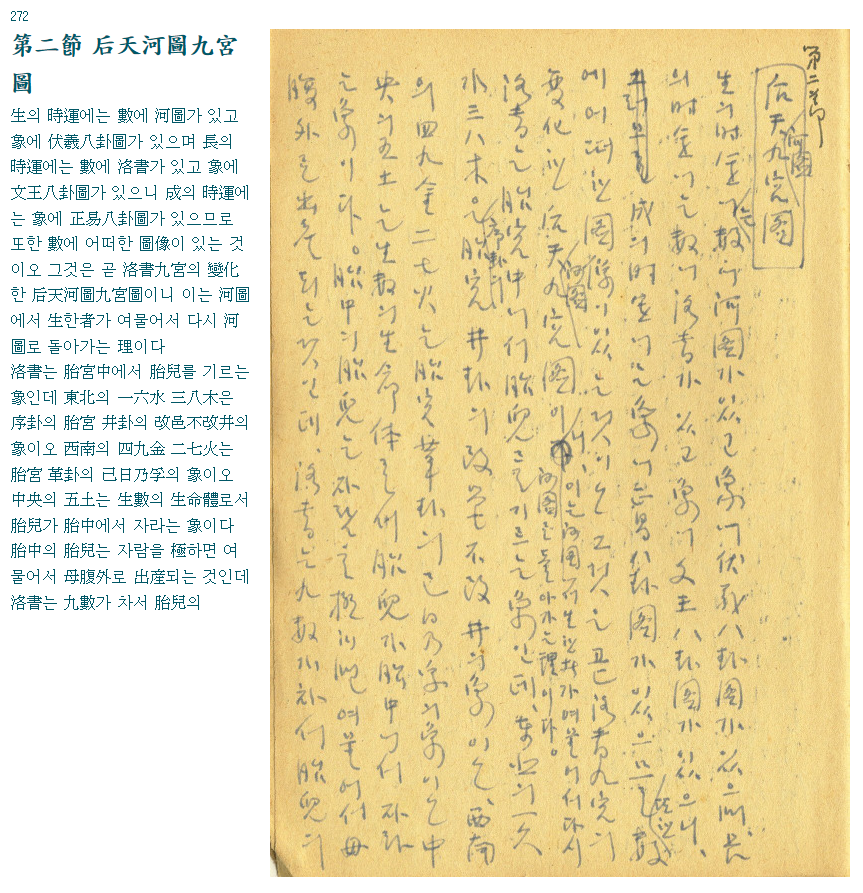 272
第二節 后天河圖九宮
圖
生의 時運에는 數에 河圖가 있고
象에 伏羲八卦圖가 있으며 長의
時運에는 數에 洛書가 있고 象에
文王八卦圖가 있으니 成의 時運에
는 象에 正易八卦圖가 있으므로
또한 數에 어떠한 圖像이 있는 것
이오 그것은 곧 洛書九宮의 變化
한 后天河圖九宮圖이니 이는 河圖
에서 生한者가 여물어서 다시 河
圖로 돌아가는 理이다
洛書는 胎宮中에서 胎兒를 기르는
象인데 東北의 一六水 三八木은
序卦의 胎宮 井卦의 改邑不改井의
象이오 西南의 四九金 二七火는
胎宮 革卦의 己日乃孚의 象이오
中央의 五土는 生數의 生命體로서
胎兒가 胎中에서 자라는 象이다
胎中의 胎兒는 자람을 極하면 여
물어서 母腹外로 出産되는 것인데
洛書는 九數가 차서 胎兒의
第二節
后天河圖九宮图
生의 时運에는 数에 河图가 있고 象에 伏羲八卦图가 있으며 長
의 时運에는 数에 洛書가 있고 象에 文王八卦图가 있으니、
成의 时運에는 象에 正易八卦图가 있으므로 또한 数
에 어떠한 图像이 있는 것이오 그것은 곧 洛書九宮의
变化한 后天河图九宮图이니、이는 河图에서 生한 者가 여물어서 다시 河图로 돌아가는 理이다。
洛書는 胎宮中에서 胎兒를 기르는 象인데、東北의 一六
水 三八木은 序卦의 胎宮 井卦의 改邑不改井의 象이오、西南
의 四九金 二七火는 胎宮 革卦의 己日乃孚의 象이오 中
央의 五土는 生数의 生命体로서 胎兒가 胎中에서 자라
는 象이다。胎中의 胎兒는 자람을 極하면 여물어서 母
腹外로 出産되는 것인데、洛書는 九数가 차서 胎兒의